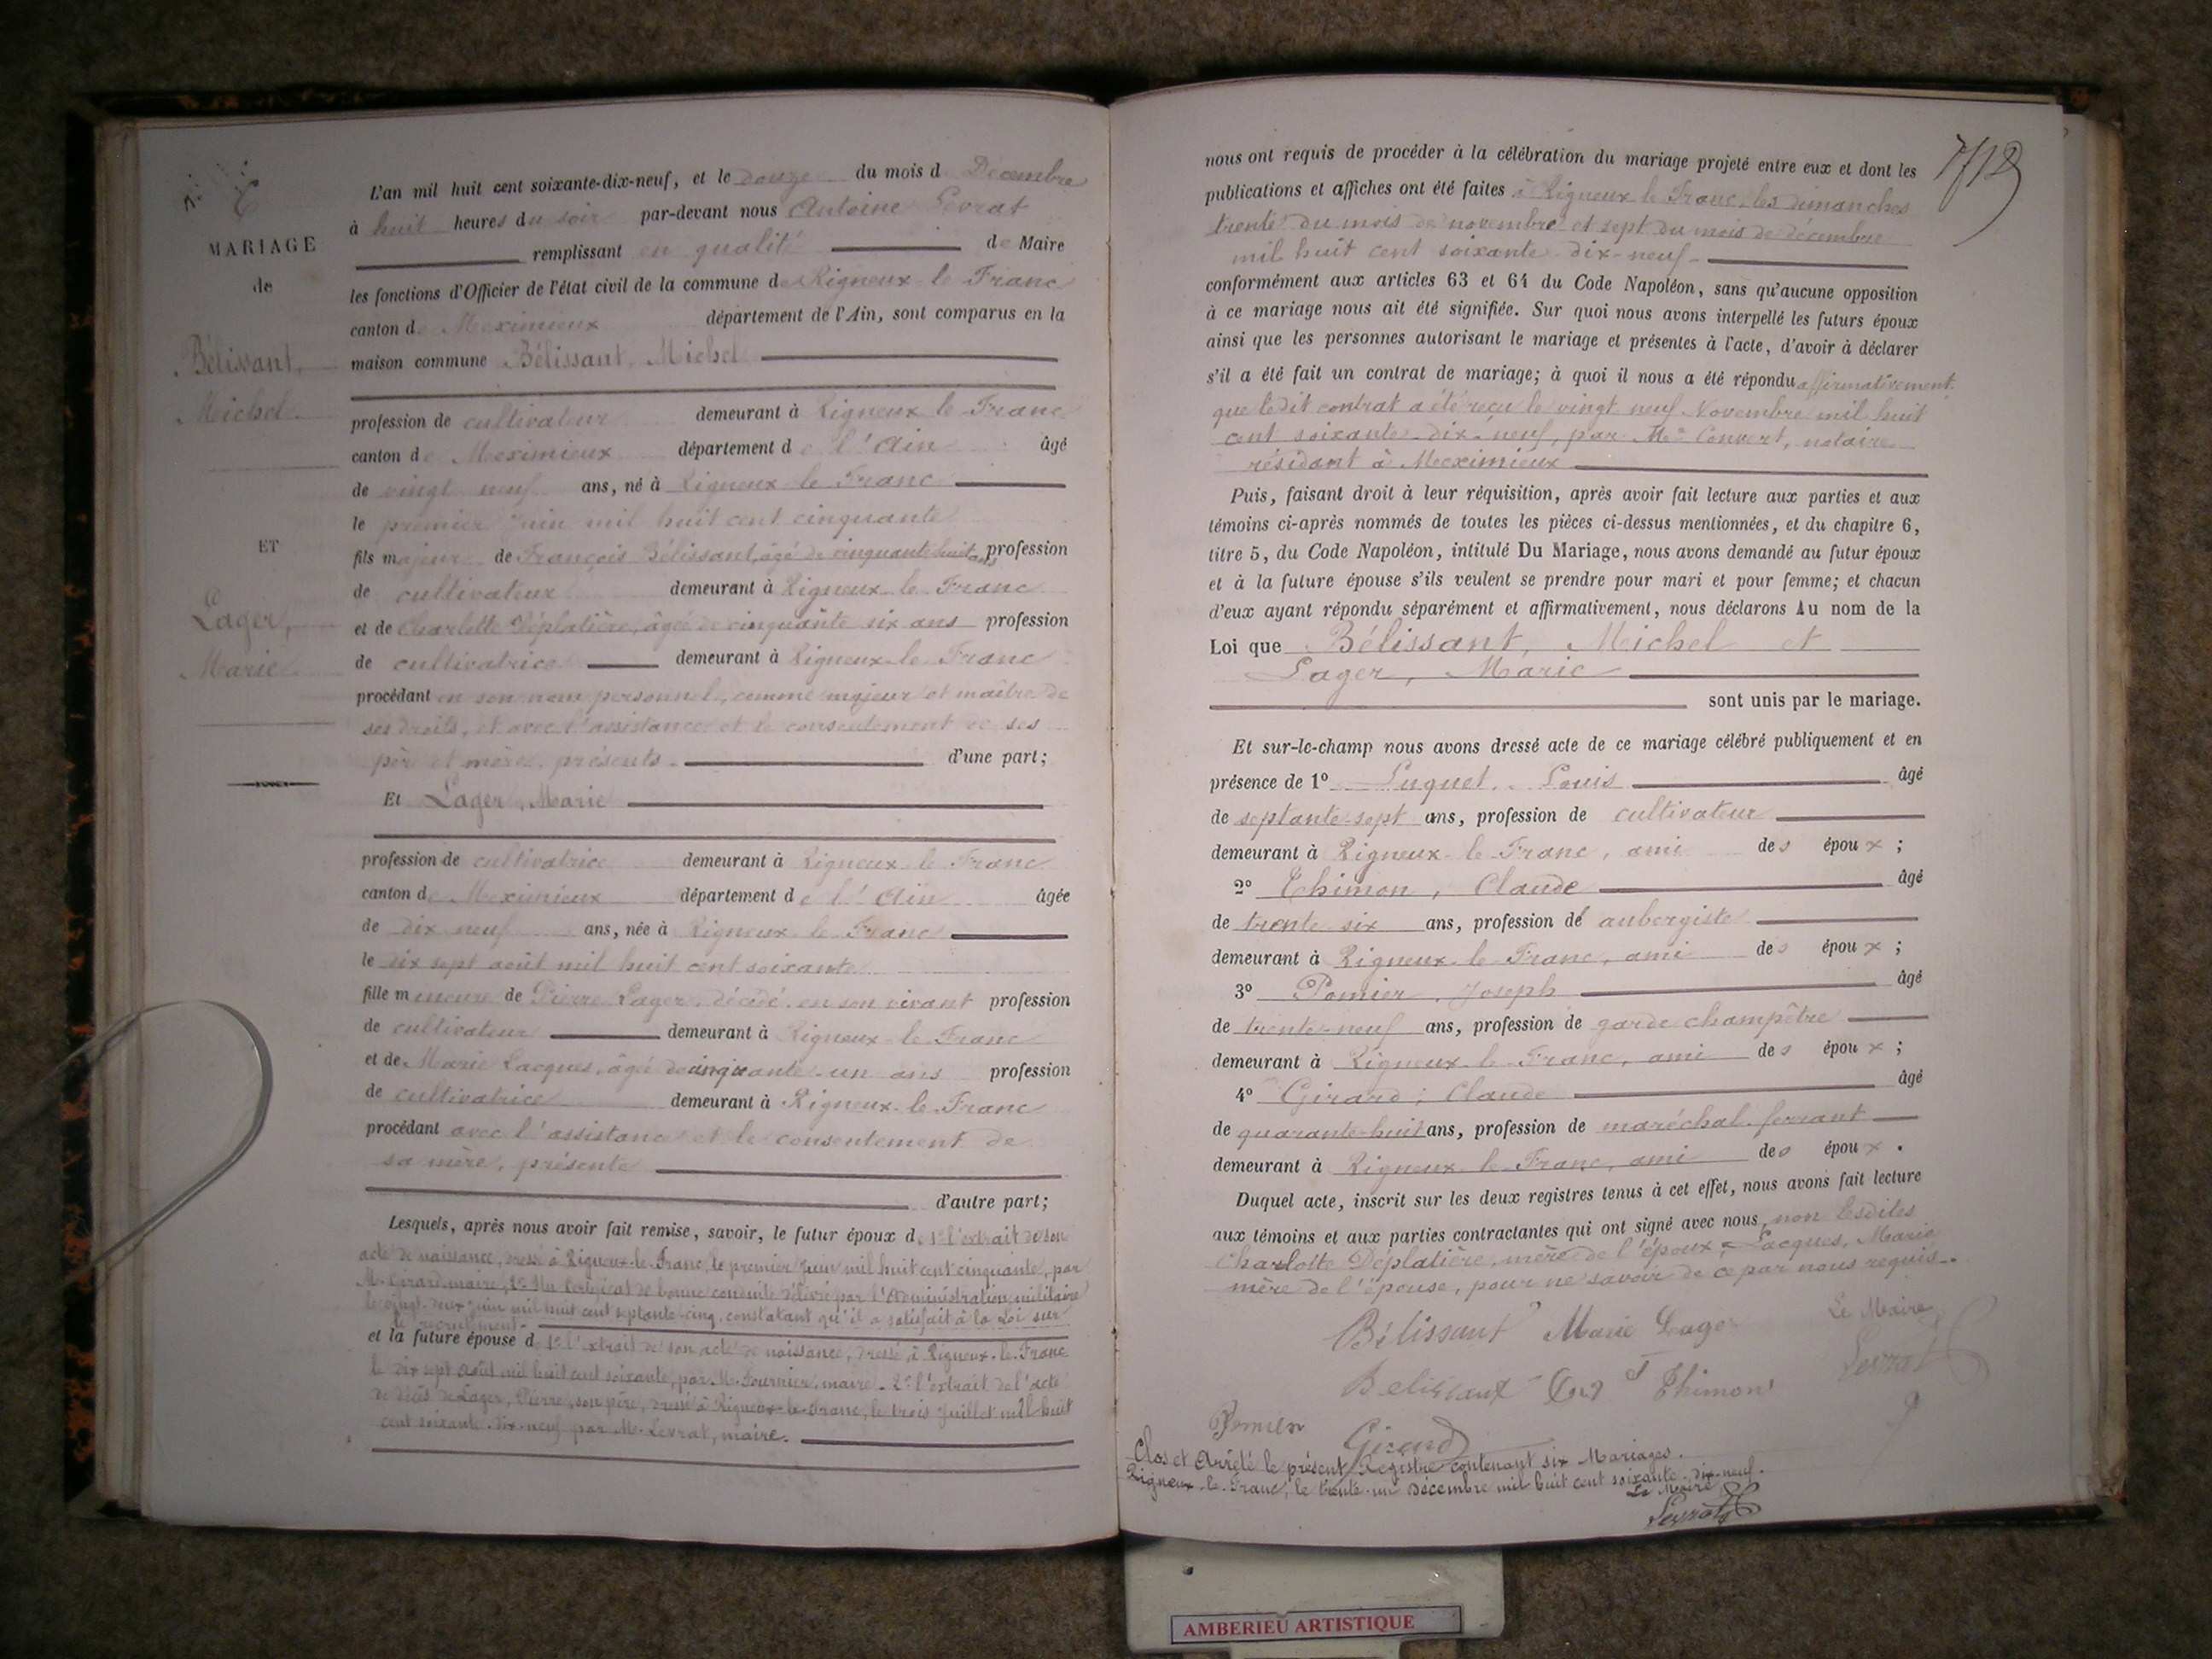 MARIAGE
de
Bélissant,
Michel
ET
Lager,
Marie
L'an mil huit cent soixante-dix-neuf, et le douze du mois d Décembre
à huit heures du soir par-devant nous Antoine Levrat
remplissant en qualité de Maire
les fonctions d'Officier de l'état civil de la commune de Rigneux-le-Franc
canton de Meximieux département de l'Ain, sont comparus en la
maison commune Bélissant, Michel
profession de cultivateur demeurant à Rigneux le Franc
canton de Meximieux département de l'Ain âgé
de vingt neuf ans, né à Rigneux le Franc
le premier Juin mil huit cent cinquante
fils majeur de François Bélissant, âgé de cinquante huit ans profession
de cultivateur demeurant à Rigneux le Franc
et de Charlotte Déplatière, âgée de cinquante six ans profession
de cultivatrice demeurant à Rigneux le Franc
procédant en son nom personnel, comme majeur et maître de
ses droits, et avec l'assistance et le consentement de ses
père et mère, présents d'une part;
Et Lager, Marie
profession de cultivatrice demeurant à Rigneux le Franc
canton de Meximieux département de l'Ain âgée
de dix neuf ans, née à Rigneux le Franc
le dix sept août mil huit cent soixante
fille mineure de Pierre Lager, décédé, en son vivant profession
de cultivateur demeurant à Rigneux-le-Franc
et de Marie Lacques, âgé de cinquante un ans profession
de cultivatrice demeurant à Rigneux-le-Franc
procédant avec l'assistance et le consentement de
sa mère, présente
d'autre part;
Lesquels, après nous avoir fait remise, savoir, le futur époux de 1° l'extrait de son
acte de naissance, dressé à Rigneux-le-Franc, le premier Juin mil huit cent cinquante, par
M. Girard maire, 2° Un Certificat de bonne conduite délivré par l'Administration militaire
le vingt-deux juin mil huit cent septante-cinq, constatant qu'il a satisfait à la Loi sur
le recrutement
et la future épouse d 1° l'extrait de son acte de naissance, dressé à Rigneux-le-Franc
le dix sept Août mil huit cent soixante, par M. Fournier, maire. 2° l'extrait de l'acte
de décès de Lager, Pierre, son père, dressé à Rigneux-le-Franc, le trois Juillet mil huit
cent soixante-dix-neuf par M. Levrat, maire.
nous ont requis de procéder à la célébration du mariage projeté entre eux et dont les
publications et affiches ont été faites à Rigneux le Franc, les dimanches
trente du mois de novembre et sept du mois de décembre
mil huit cent soixante-dix-neuf
conformément aux articles 63 et 64 du Code Napoléon, sans qu'aucune opposition
à ce mariage nous ait été signifiée. Sur quoi nous avons interpellé les futurs époux
ainsi que les personnes autorisant le mariage et présentes à l'acte, d'avoir à déclarer
s'il a été fait un contrat de mariage; à quoi il nous a été répondu affirmativement
que ledit contrat a été reçu le vingt neuf Novembre mil huit
cent soixante-dix-neuf, par Me Convert, notaire
résidant à Meximieux
Puis, faisant droit à leur réquisition, après avoir fait lecture aux parties et aux
témoins ci-après nommés de toutes les pièces ci-dessus mentionnées, et du chapitre 6,
titre 5, du Code Napoléon, intitulé Du Mariage, nous avons demandé au futur époux
et à la future épouse s'ils veulent se prendre pour mari et pour femme; et chacun
d'eux ayant répondu séparément et affirmativement, nous déclarons Au nom de la
Loi que Bélissant, Michel et
Lager, Marie
sont unis par le mariage.
Et sur-le-champ nous avons dressé acte de ce mariage célébré publiquement et en
présence de 1° Luquet, Louis âgé
de septante-sept ans, profession de cultivateur
demeurant à Rigneux-le-Franc, ami des époux;
2° Thimon, Claude âgé
de trente six ans, profession de aubergiste
demeurant à Rigneux le Franc, ami des époux;
3° Pomier, Joseph âgé
de trente-neuf ans, profession de garde champêtre
demeurant à Rigneux le Franc, ami des époux;
4° Girard, Claude âgé
de quarante-huit ans, profession de maréchal-ferrant
demeurant à Rigneux le Franc, ami des époux.
Duquel acte, inscrit sur les deux registres tenus à cet effet, nous avons fait lecture
aux témoins et aux parties contractantes qui ont signé avec nous, non lesdites
Charlotte Déplatière, mère de l'époux, Lacques, Marie
mère de l'épouse, pour ne savoir de ce par nous requis.
Bélissant Marie Lager Le Maire
Belissant Thimon Levrat
Pomier Girard
Clos et Arrêté le présent Registre contenant six Mariages.
Rigneux-le-Franc, le trente-un Décembre mil huit cent soixante-dix-neuf.
Le Maire
Levrat
AMBERIEU ARTISTIQUE